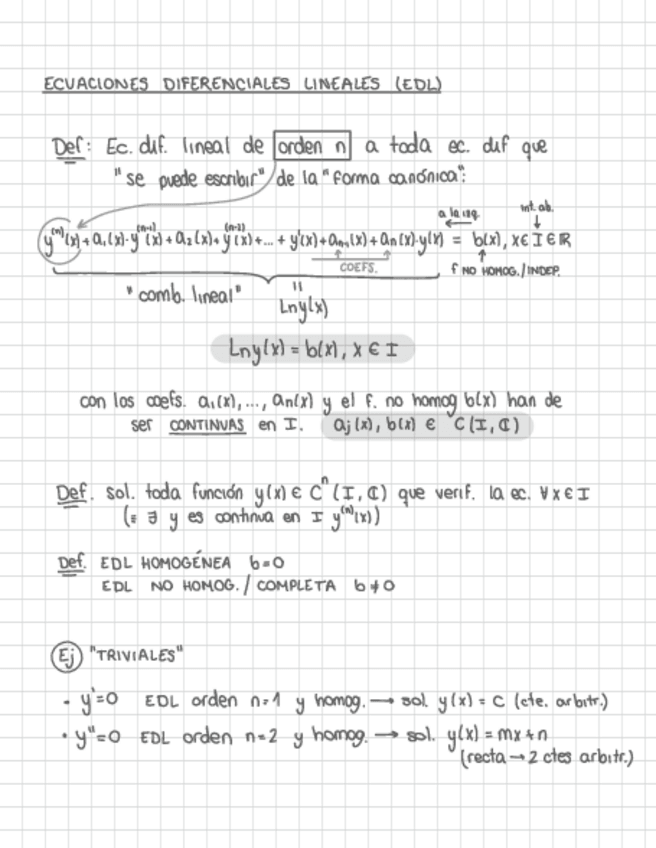 ECUACIONES DIFERENCIALES LINEALES (EDL)
Def: Ec. dif. lineal de orden n a toda ec. dif que
"se puede escribir" de la "forma canónica":
a la izq. int. ab.
y⁽ⁿ⁾(x) + a₁(x)·y⁽ⁿ⁻¹⁾(x) + a₂(x) + y⁽ⁿ⁻²⁾(x) + ... + y'(x) + aₙ₋₁(x) + aₙ(x)·y(x) = b(x), x ∈ I ∈ ℝ
COEFS. f NO HOMOG./INDEP.
"comb. lineal" = Lny(x)
Lny(x) = b(x), x ∈ I
con los coefs. a₁(x), ..., aₙ(x) y el f. no homog b(x) han de
ser CONTINUAS en I. aⱼ(x), b(x) ∈ C(I, ℂ)
Def. sol. toda función y(x) ∈ Cⁿ(I, ℂ) que verif. la ec. ∀x ∈ I
(≡ ∃ y es continua en I y⁽ⁿ⁾(x))
Def. EDL HOMOGÉNEA b=0
EDL NO HOMOG./COMPLETA b≠0
Ej "TRIVIALES"
- y'=0 EDL orden n=1 y homog. → sol. y(x) = C (cte. arbitr.)
· y''=0 EDL orden n=2 y homog. → sol. y(x) = mx+n
(recta → 2 ctes arbitr.)